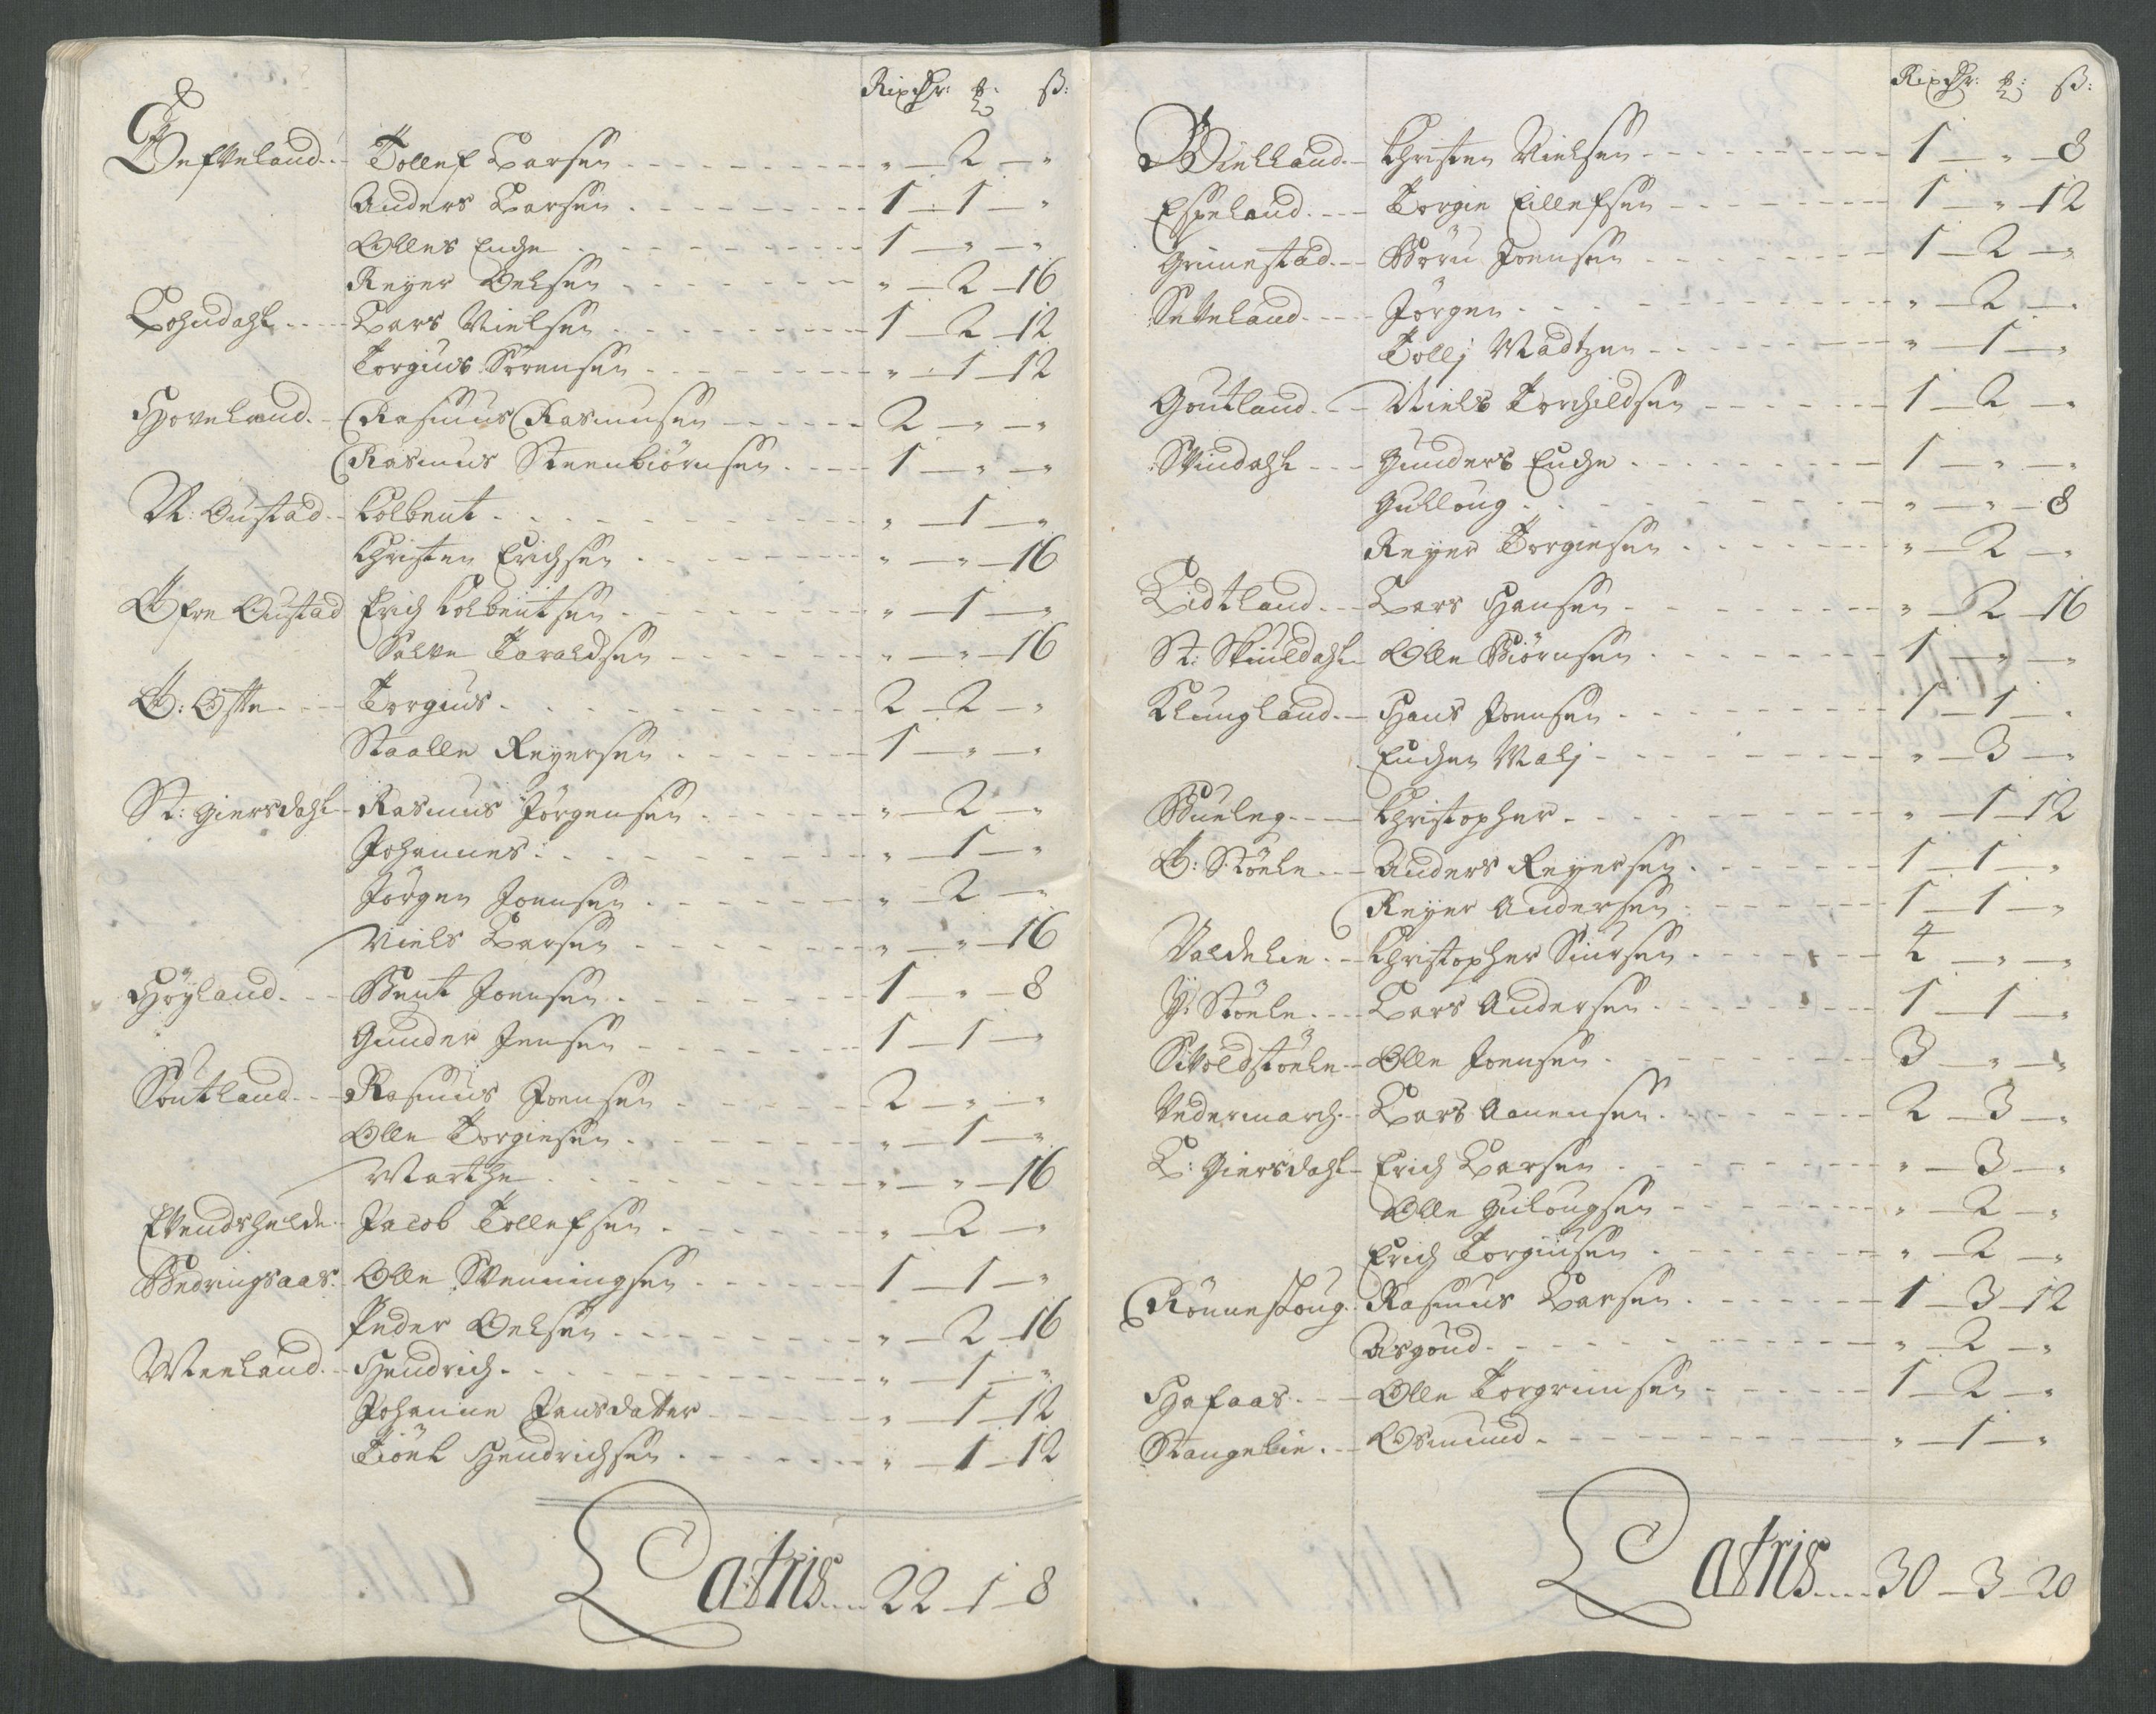 Rixdr: ꝳ: ß:
Gefveland Tollef Larsen " 2 "
Anders Larsen 1 1 "
Olles Enche 1 " "
Reyer Oelsen " 2 16
Lohndahl Lars Nielsen 1 2 12
Torgius Sörensen " 1 12
Hoveland Rasmus Rasmusen 2 " "
Rasmus Steenbiörnsen 1 " "
N: Oustad Colbent " 1 "
Christen Erichsen " " 16
Øfre Oustad Erich Colbentsen " 1 "
Salve Taraldsen " " 16
Ø: Ofte Torgius 2 2 "
Staalle Reyersen 1 " "
St: Giersdahl Rasmus Jörgensen " 2 "
Johannes " 1 "
Jörgen Joensen " 2 "
Niels Larsen " " 16
Höyland Bent Joensen 1 " 8
Gunder Jensen 1 1 "
Soutland Rasmus Joensen 2 " "
Olle Torgiesen " 1 "
Marthe " " 16
Evendshelde Jacob Tollefsen " 2 "
Bedringsaas Olle Svenningsen 1 1 "
Peder Oelsen " 2 16
Meeland Hendrich " 1 "
Johanne Jansdatter " 1 12
Tiöel Hendrichsen " 1 12
Latris 22 1 8
Rixdr: ꝳ: ß:
Birkland Christen Nielsen 1 " 8
Espeland Torgie Eillefsen 1 " 12
Grimestad Böru Joensen 1 2 "
Setteland Jörgen " 2 "
Tollj Madtzen " 1 "
Goutland Niels Torchildsen 1 2 "
Svindahl Gunders Enche 1 " "
Gulloug " " 8
Reyer Torgiesen " 2 "
Lidtland Lars Hansen " 2 16
St: Skuldahl Olle Biörnsen 1 " "
Klungland Hans Joensen 1 1 "
Enchen Malj " 3 "
Bueleg Christopher " 1 12
Ø: Stöele Anders Reyersen 1 1 "
Reyer Andersen 1 1 "
Valdelie Christopher Siursen 4 " "
Y: Stöele Lars Andersen 1 1 "
Sivoldstöele Olle Joensen 3 " "
Vedermarch Lars Aanensen 2 3 "
L: Giersdahl Erich Larsen " 3 "
Olle Gulougsen " 2 "
Erich Torgiusen " 2 "
Rönneskoug Rasmus Larsen 1 3 12
Asgoud " 2 "
Hafaas Olle Torgrimsen 1 2 "
Stangelie Osmund " 1 "
Latris 30 3 20